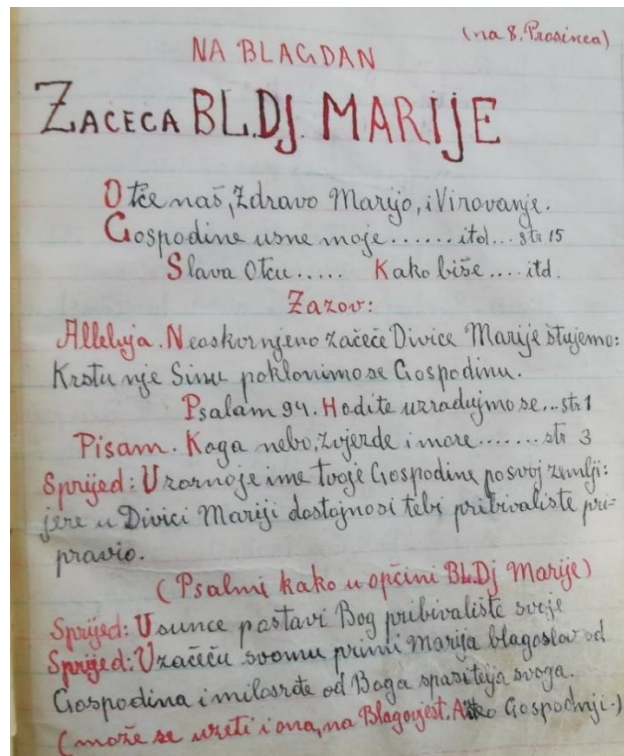 (na 8. Prosinca)
NA BLAGDAN
ZAČEĆA BL. DJ. MARIJE
Otče naš, Zdravo Marijo, i Virovanje.
Gospodine usne moje ....... itd... str 15
Slava Otcu ..... Kako biše .... itd.
Zazov:
Alleluja. Neoskvrnjeno začeće Divice Marije štujemo:
Krstu nje Sinu poklonimo se Gospodinu.
Psalam 94. Hodite uzradujmo se... str 1
Pisam. Koga nebo, zvjezde i more ........ str 3
Sprijed: Uzorno je ime tvoje Gospodine po svoj zemlji:
jere u Divici Mariji dostojno si tebi pribivalište pri=
pravio.
(Psalmi kako u općini BL. Dj Marije)
Sprijed: U sunce postavi Bog pribivalište svoje
Sprijed: U začeću svomu primi Marija blagoslov od
Gospodina i milosrđe od Boga spasitelja svoga.
(može se uzeti i ona, na Blagovjest. Gospodnji.)